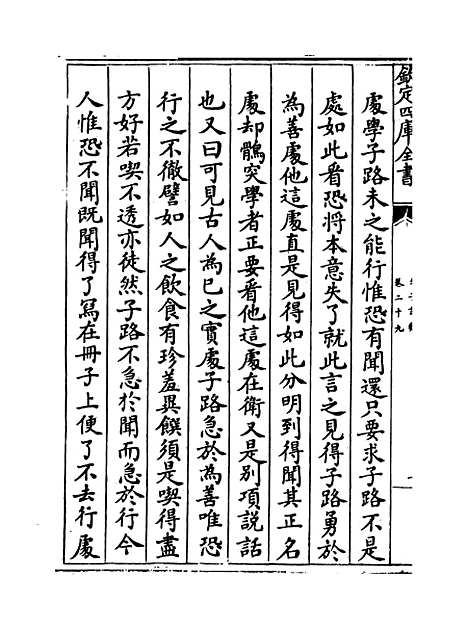 欽定四庫全書
卷二十九
處學子路未之能行惟恐有聞還只要求子路不是
處如此看恐將本意失了就此言之見得子路勇於
為善處他這處直是見得如此分明到得聞其正名
處却鶻突學者正要看他這處在衛又是別項說話
也又曰可見古人為已之實處子路急於為善唯恐
行之不徹譬如人之飲食有珍羞異饌須是喫得盡
方好若喫不透亦徒然子路不急於聞而急於行今
人惟恐不聞既聞得了寫在冊子上便了不去行處